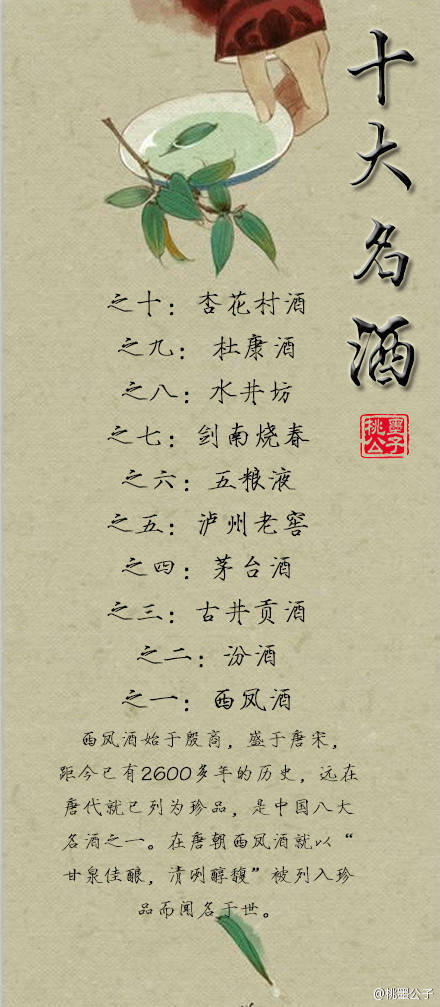 十大名酒
桃墨公子
之十：杏花村酒
之九：杜康酒
之八：水井坊
之七：剑南烧春
之六：五粮液
之五：泸州老窖
之四：茅台酒
之三：古井贡酒
之二：汾酒
之一：西凤酒
西凤酒始于殷商，盛于唐宋，
距今已有2600多年的历史，远在
唐代就已列为珍品，是中国八大
名酒之一。在唐朝西凤酒就以“
甘泉佳酿，清冽醇馥”被列入珍
品而闻名于世。
@桃墨公子